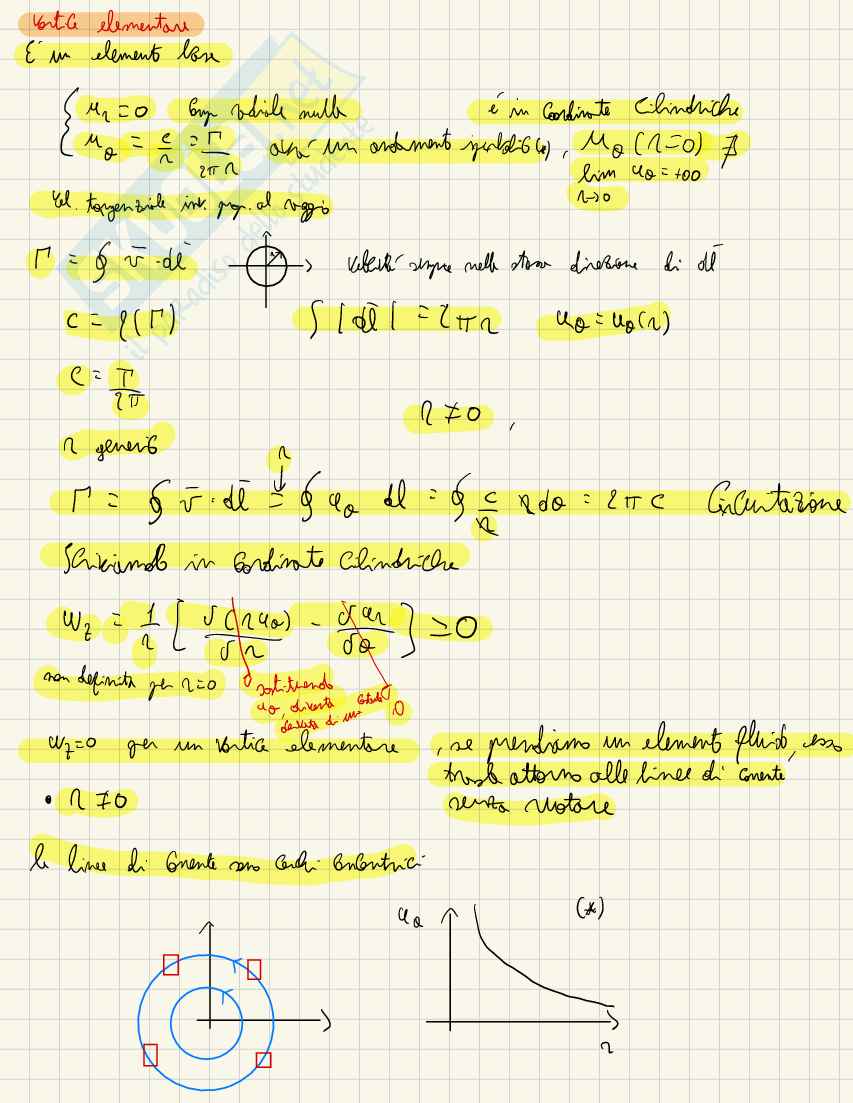 Vortice elementare
È un elemento base
u_r = 0 Comp radiale nulla è in Coordinate Cilindriche
u_θ = c/r = Γ/2πr avrà un andamento iperbolico(*), u_θ(r=0) ∄
lim u_θ = +∞
r→0
Vel. tangenziale inv. prop. al raggio
Γ = ∮ v̄ · dl̄ velocità sempre nella stessa direzione di dl̄
c = f(Γ) ∫ |dl̄| = 2πr u_θ = u_θ(r)
c = Γ/2π
r ≠ 0,
r generico
r
↓
Γ = ∮ v̄ · dl̄ = ∮ u_θ dl = ∮ c/r r dθ = 2πc Circuitazione
Scriviamolo in Coordinate Cilindriche
ω_z = 1/r [ ∂(r u_θ)/∂r - ∂u_r/∂θ ] = 0
non definita per r=0 sostituendo
u_θ, diventa
derivata di una costante
0
0
ω_z=0 per un vortice elementare, se prendiamo un elemento fluido, esso
trasla attorno alle linee di corrente
• r ≠ 0 senza ruotare
le linee di Corrente sono cerchi concentrici
u_θ (*)
r